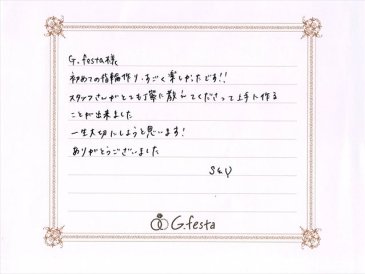 G.festa様
初めての指輪作り、すごく楽しかったです!!
スタッフさんがとても丁寧に教えてくださって上手に作る
ことが出来ました
一生大切にしようと思います!
ありがとうございました
S&Y
G.festa